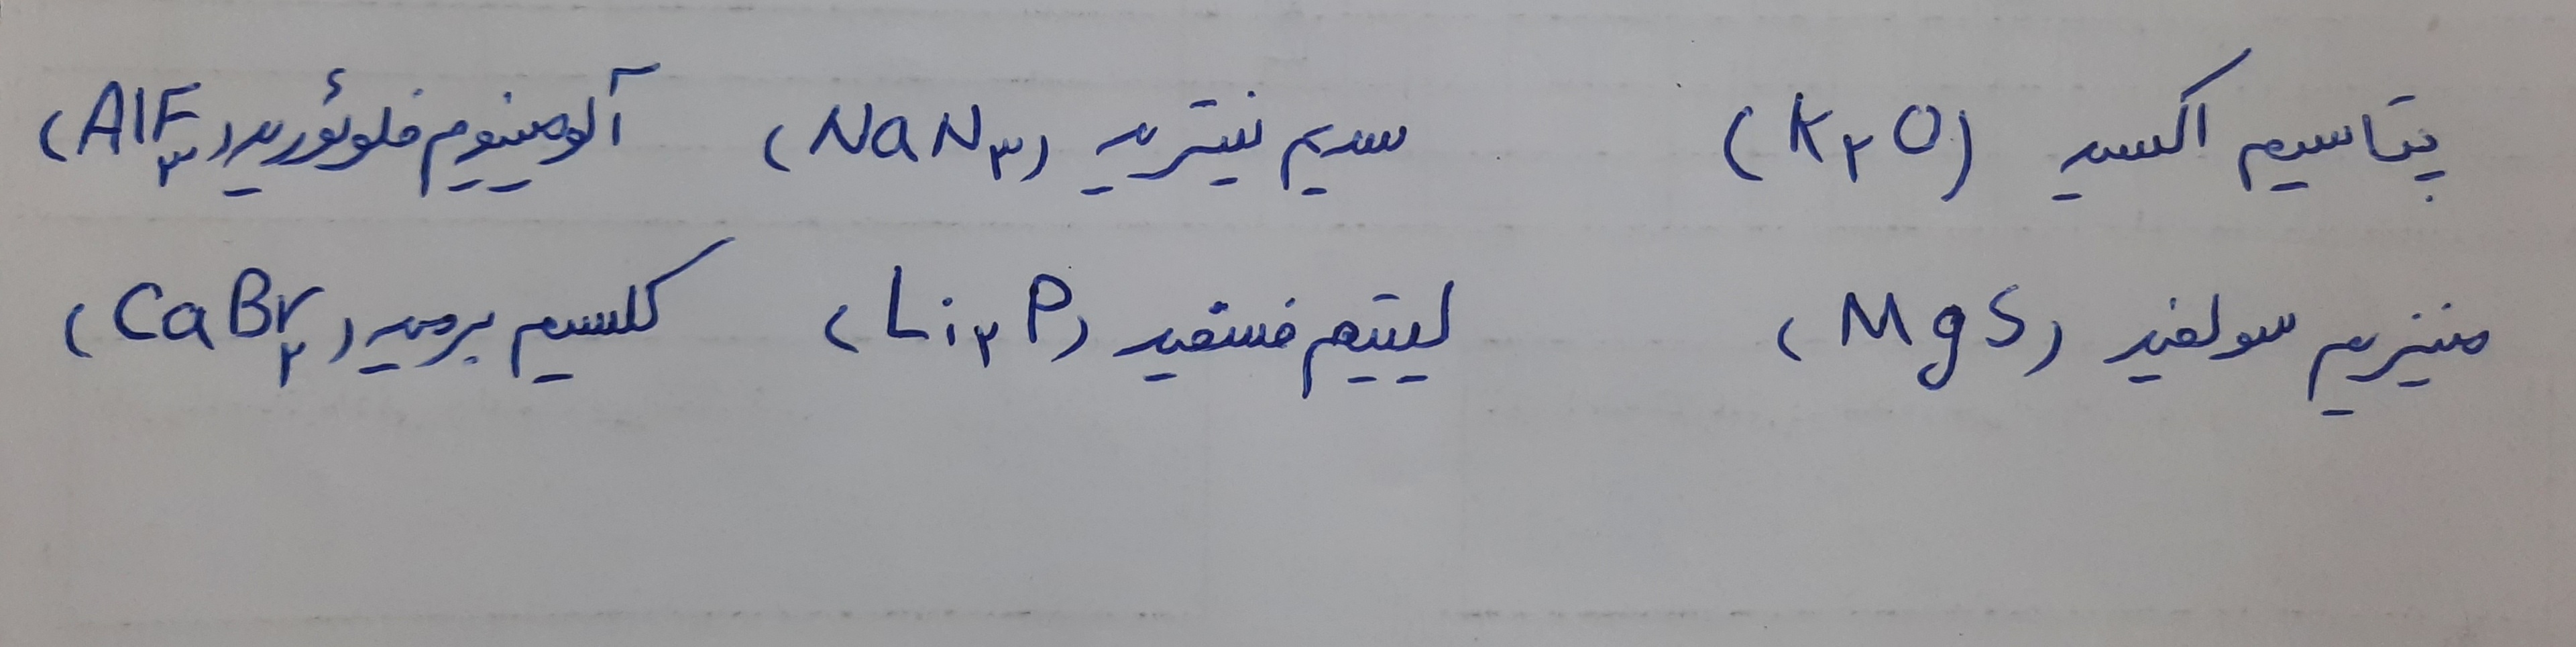 پتاسیم اکسید (K۲O) سدیم نیترید (NaN۳) آلومینیوم فلوئورید (AlF۳)
منیزیم سولفید (MgS) لیتیم فسفید (Li۳P) کلسیم برمید (CaBr۲)